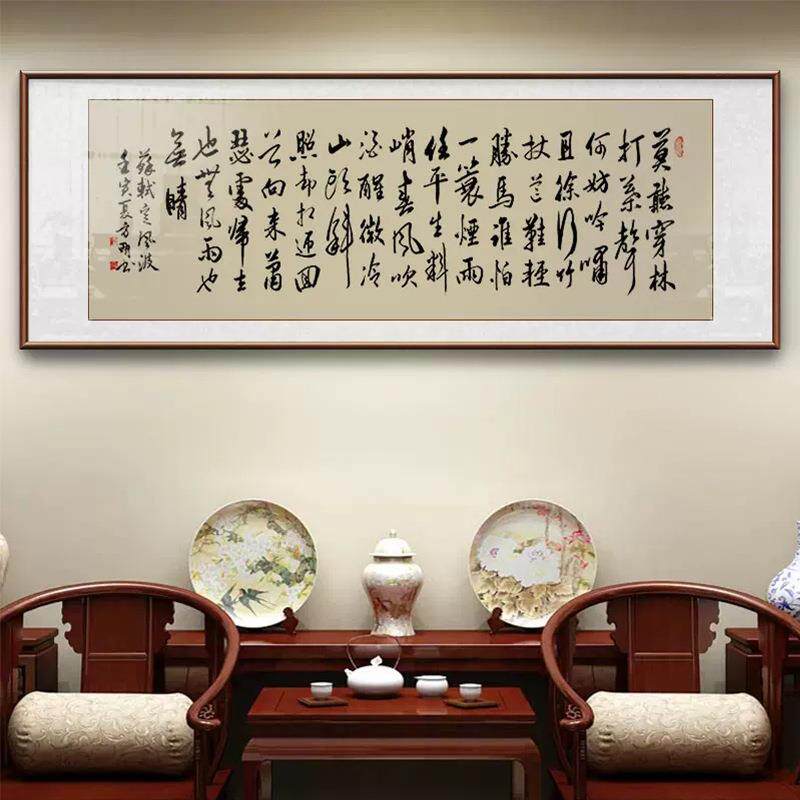 莫聽穿林
打葉聲
何妨吟嘯
且徐行竹
杖芒鞋輕
勝馬誰怕
一蓑煙雨
任平生料
峭春風吹
酒醒微冷
山頭斜
照却相迎回
首向來蕭
瑟處歸去
也無風雨也
無晴
蘇軾定風波
壬寅夏方書